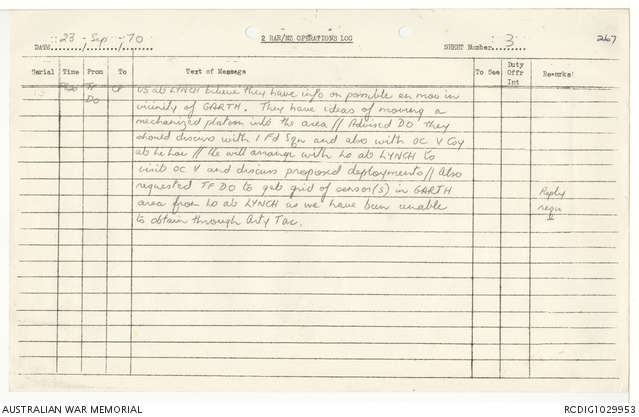 2 RAR/NZ OPERATIONS LOG
DATE 23 / Sep / 70
SHEET Number 3
267
Serial Time From To Text of Message To See Duty Offr Int Remarks
TF DO CP US at LYNCH believe they have info on possible en mov in
vicinity of GARTH. They have ideas of moving a
mechanized platoon into the area // Advised DO they
should discuss with 1 Fd Sqn and also with OC V Coy
at he hoa // He will arrange with LO at LYNCH to
visit OC V and discuss proposed deployments // Also
requested TF DO to get grid of sensor(s) in GARTH
area from LO at LYNCH as we have been unable
to obtain through Arty Tac.
Reply
requ
AUSTRALIAN WAR MEMORIAL
RCDIG1029953